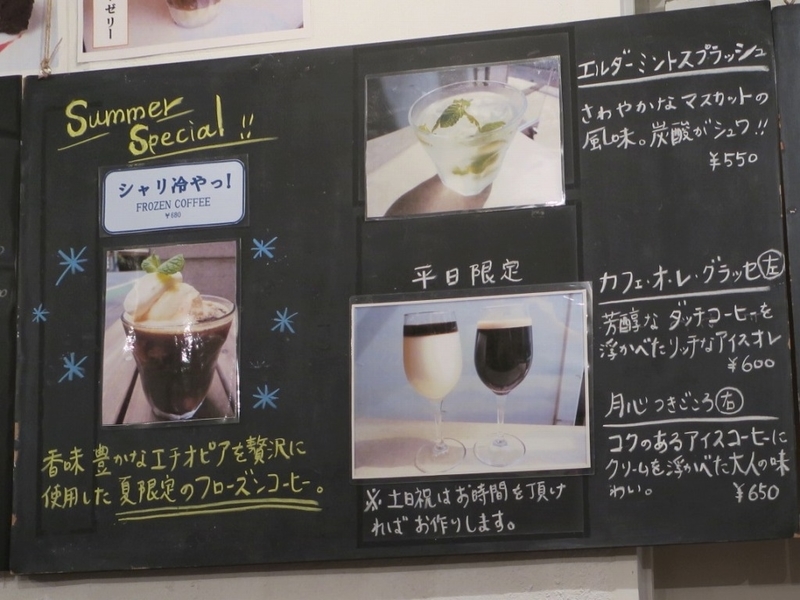 ゼリー
Summer
Special!!
シャリ冷やっ!
FROZEN COFFEE
香味豊かなエチオピアを贅沢に
使用した夏限定のフローズンコーヒー。
エルダーミントスプラッシュ
さわやかなマスカットの
風味。炭酸がシュワ!!
¥550
平日限定
※土日祝はお時間を頂け
ればお作りします。
カフェ・オ・レ・グラッセ左
芳醇なダッチコーヒーを
浮かべたリッチなアイスオレ
¥600
月心つきごころ右
コクのあるアイスコーヒーに
クリームを浮かべた大人の味
わい。
¥650